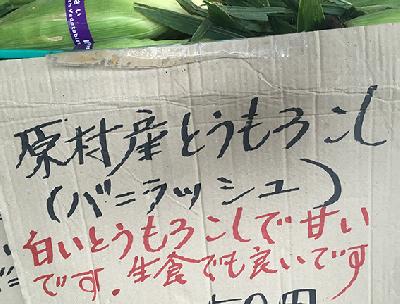 原村産とうもろこし
(バニラッシュ)
白いとうもろこしで甘い
です.生食でも良いです